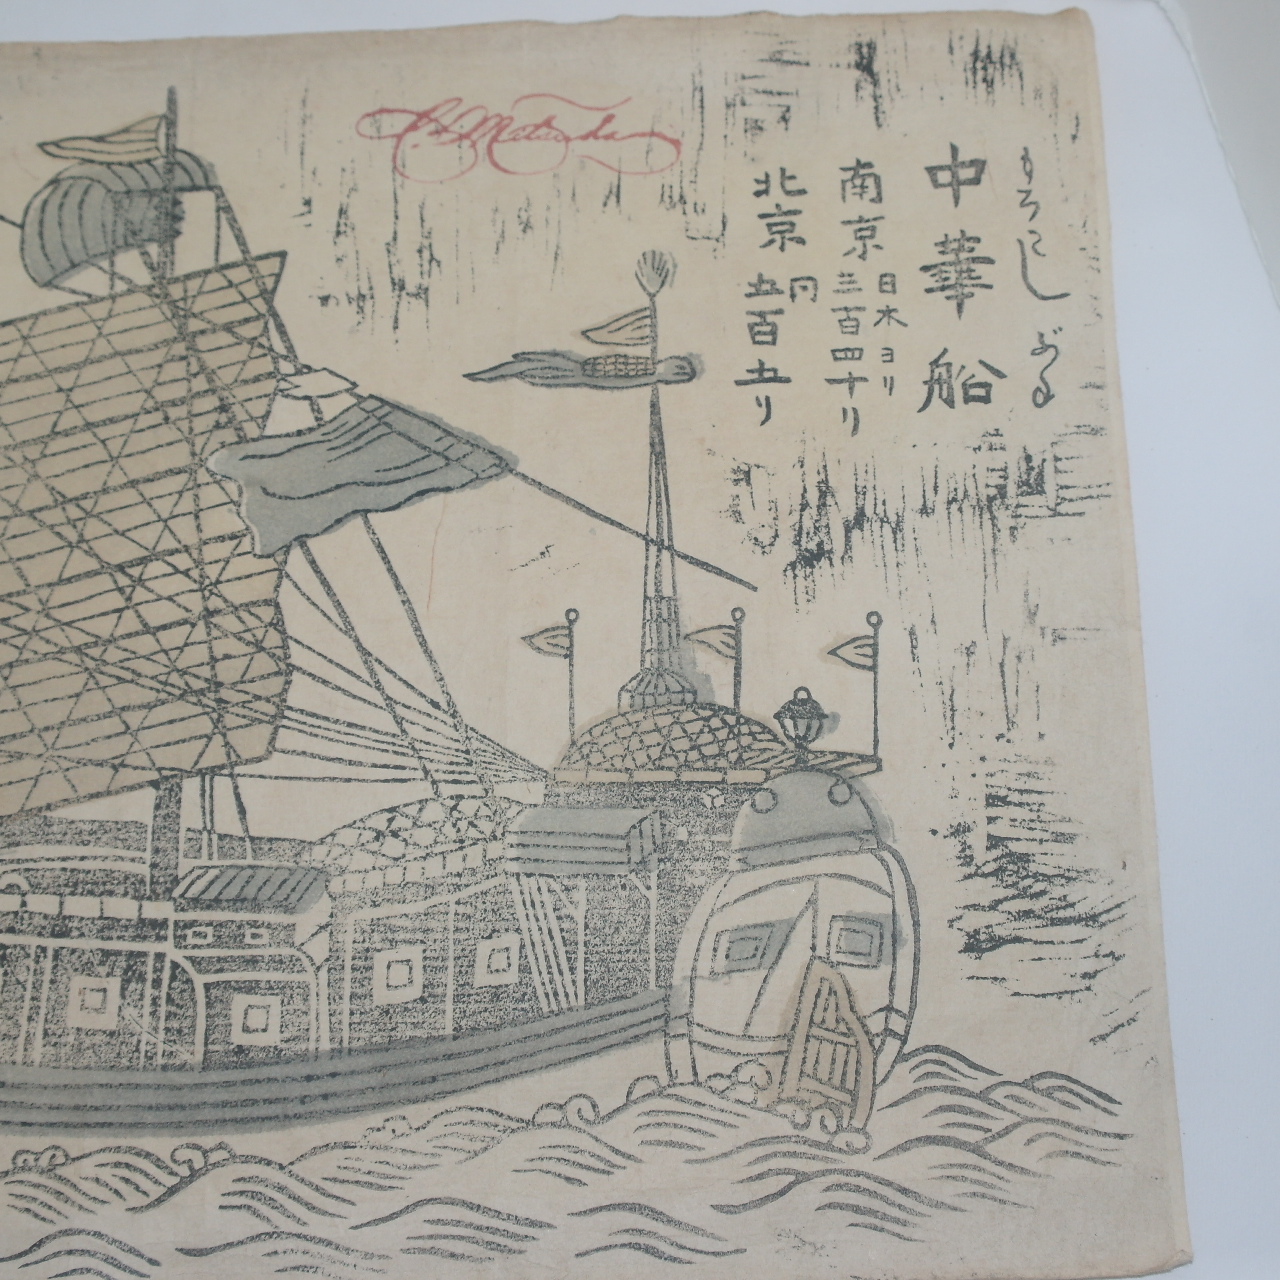 もろこしぶね
中華船
南京 日本ヨリ 三百四十リ
北京 同 五百五リ